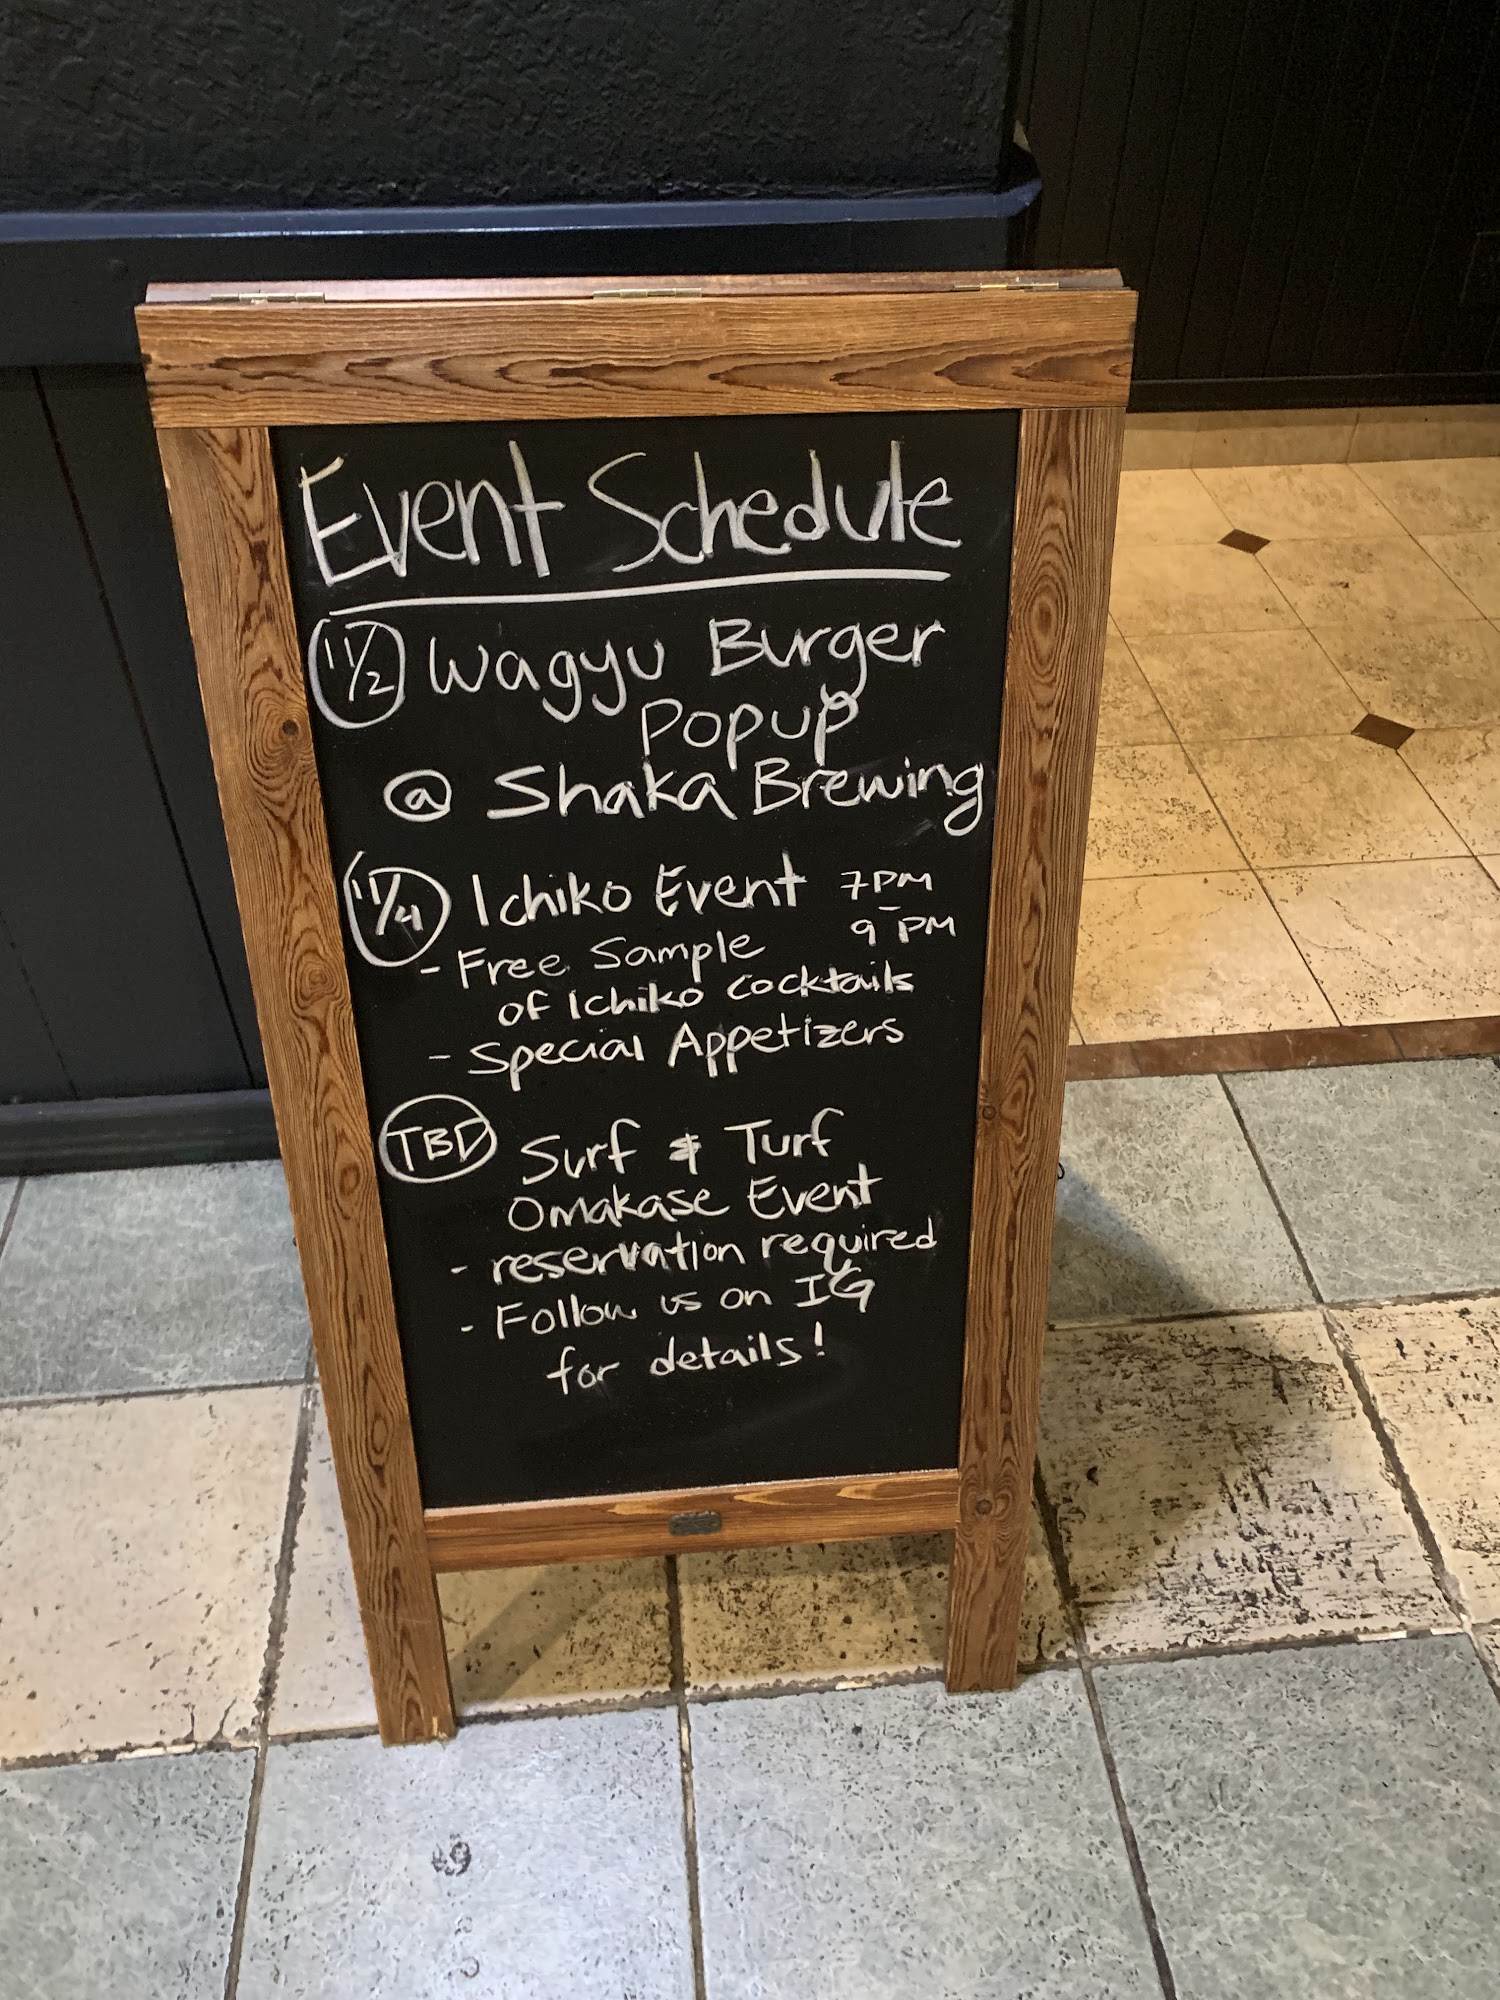 Event Schedule
11/2 Wagyu Burger
Popup
@ Shaka Brewing
11/4 Ichiko Event 7PM
- 9PM
- Free Sample
of Ichiko cocktails
- Special Appetizers
TBD Surf & Turf
Omakase Event
- reservation required
- Follow us on IG
for details!